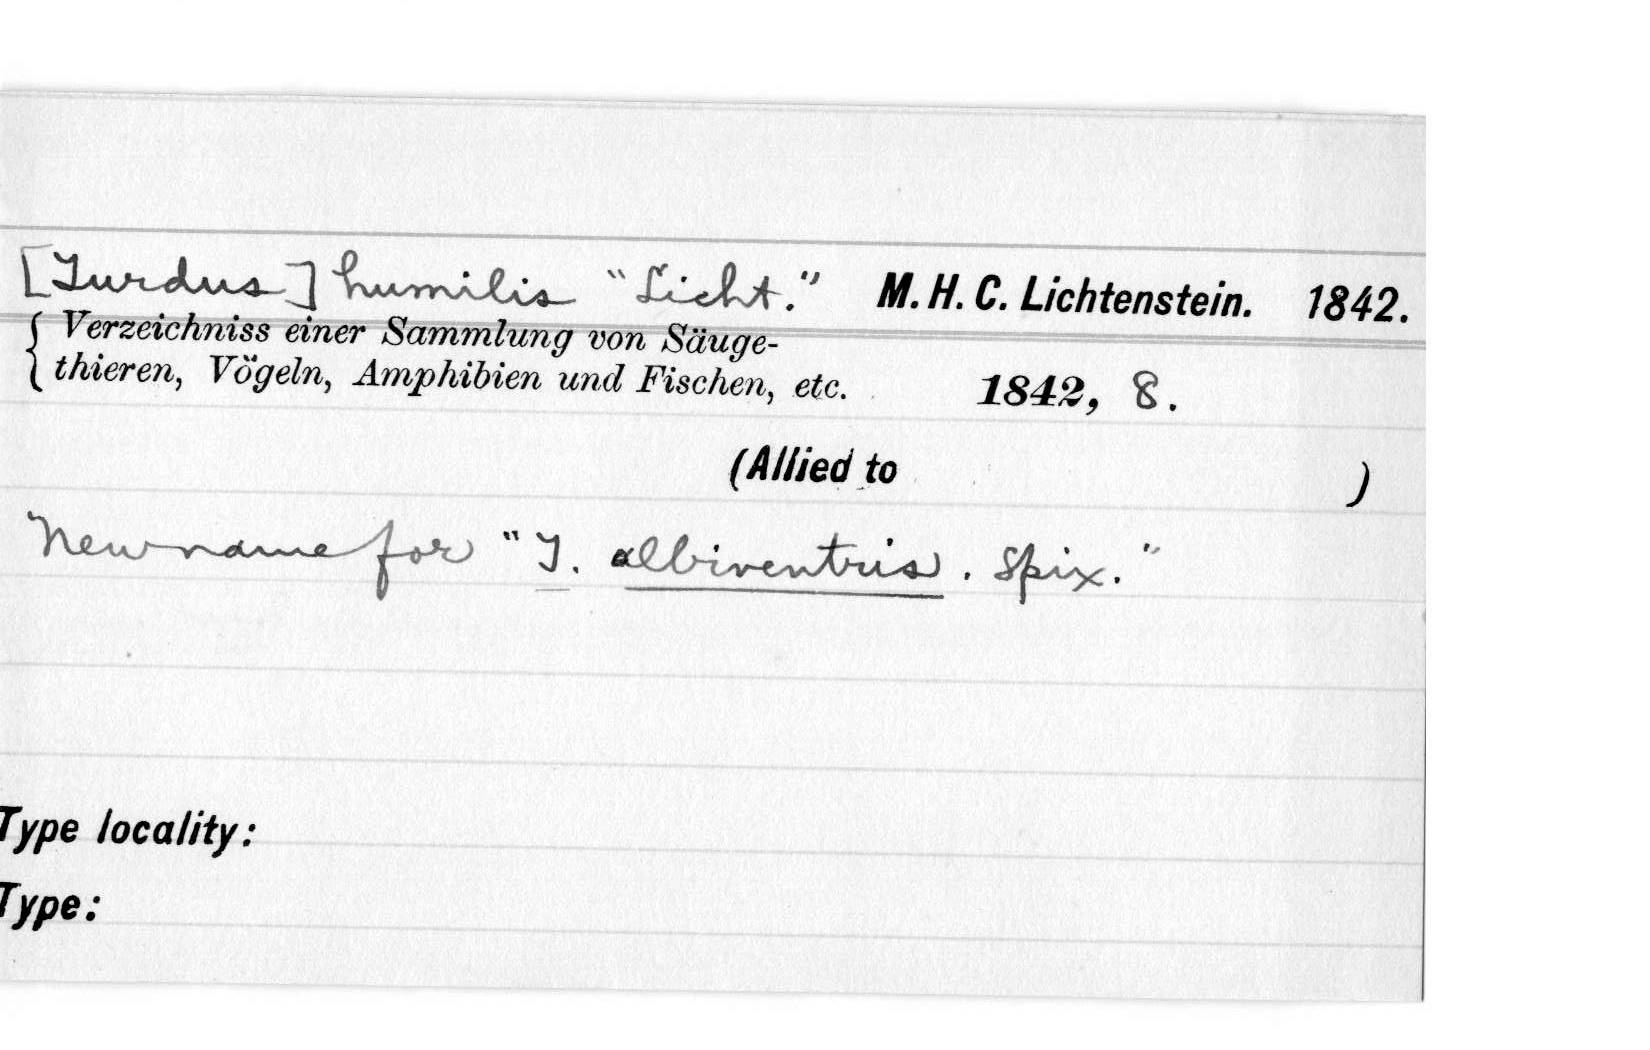 [Turdus] humilis "Licht." M. H. C. Lichtenstein. 1842.
Verzeichniss einer Sammlung von Säuge-
thieren, Vögeln, Amphibien und Fischen, etc. 1842, 8.
(Allied to )
New name for "T. albiventris. Spix."
Type locality:
Type: